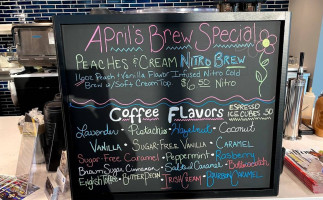 April's Brew Special
Peaches & Cream Nitro Brew
16oz Peach + Vanilla Flavor Infused Nitro Cold
Brew w/Soft Cream Top. $6.50 Nitro
Coffee Flavors
Espresso
Ice Cubes .50
Lavender · Pistachio · Hazelnut · Coconut
Vanilla · Sugar-Free Vanilla · Caramel
Sugar-Free Caramel · Peppermint · Raspberry
Brown Sugar Cinnamon · Salted Caramel · Butterscotch
English Toffee · Butter Pecan · Irish Cream · Bourbon Caramel